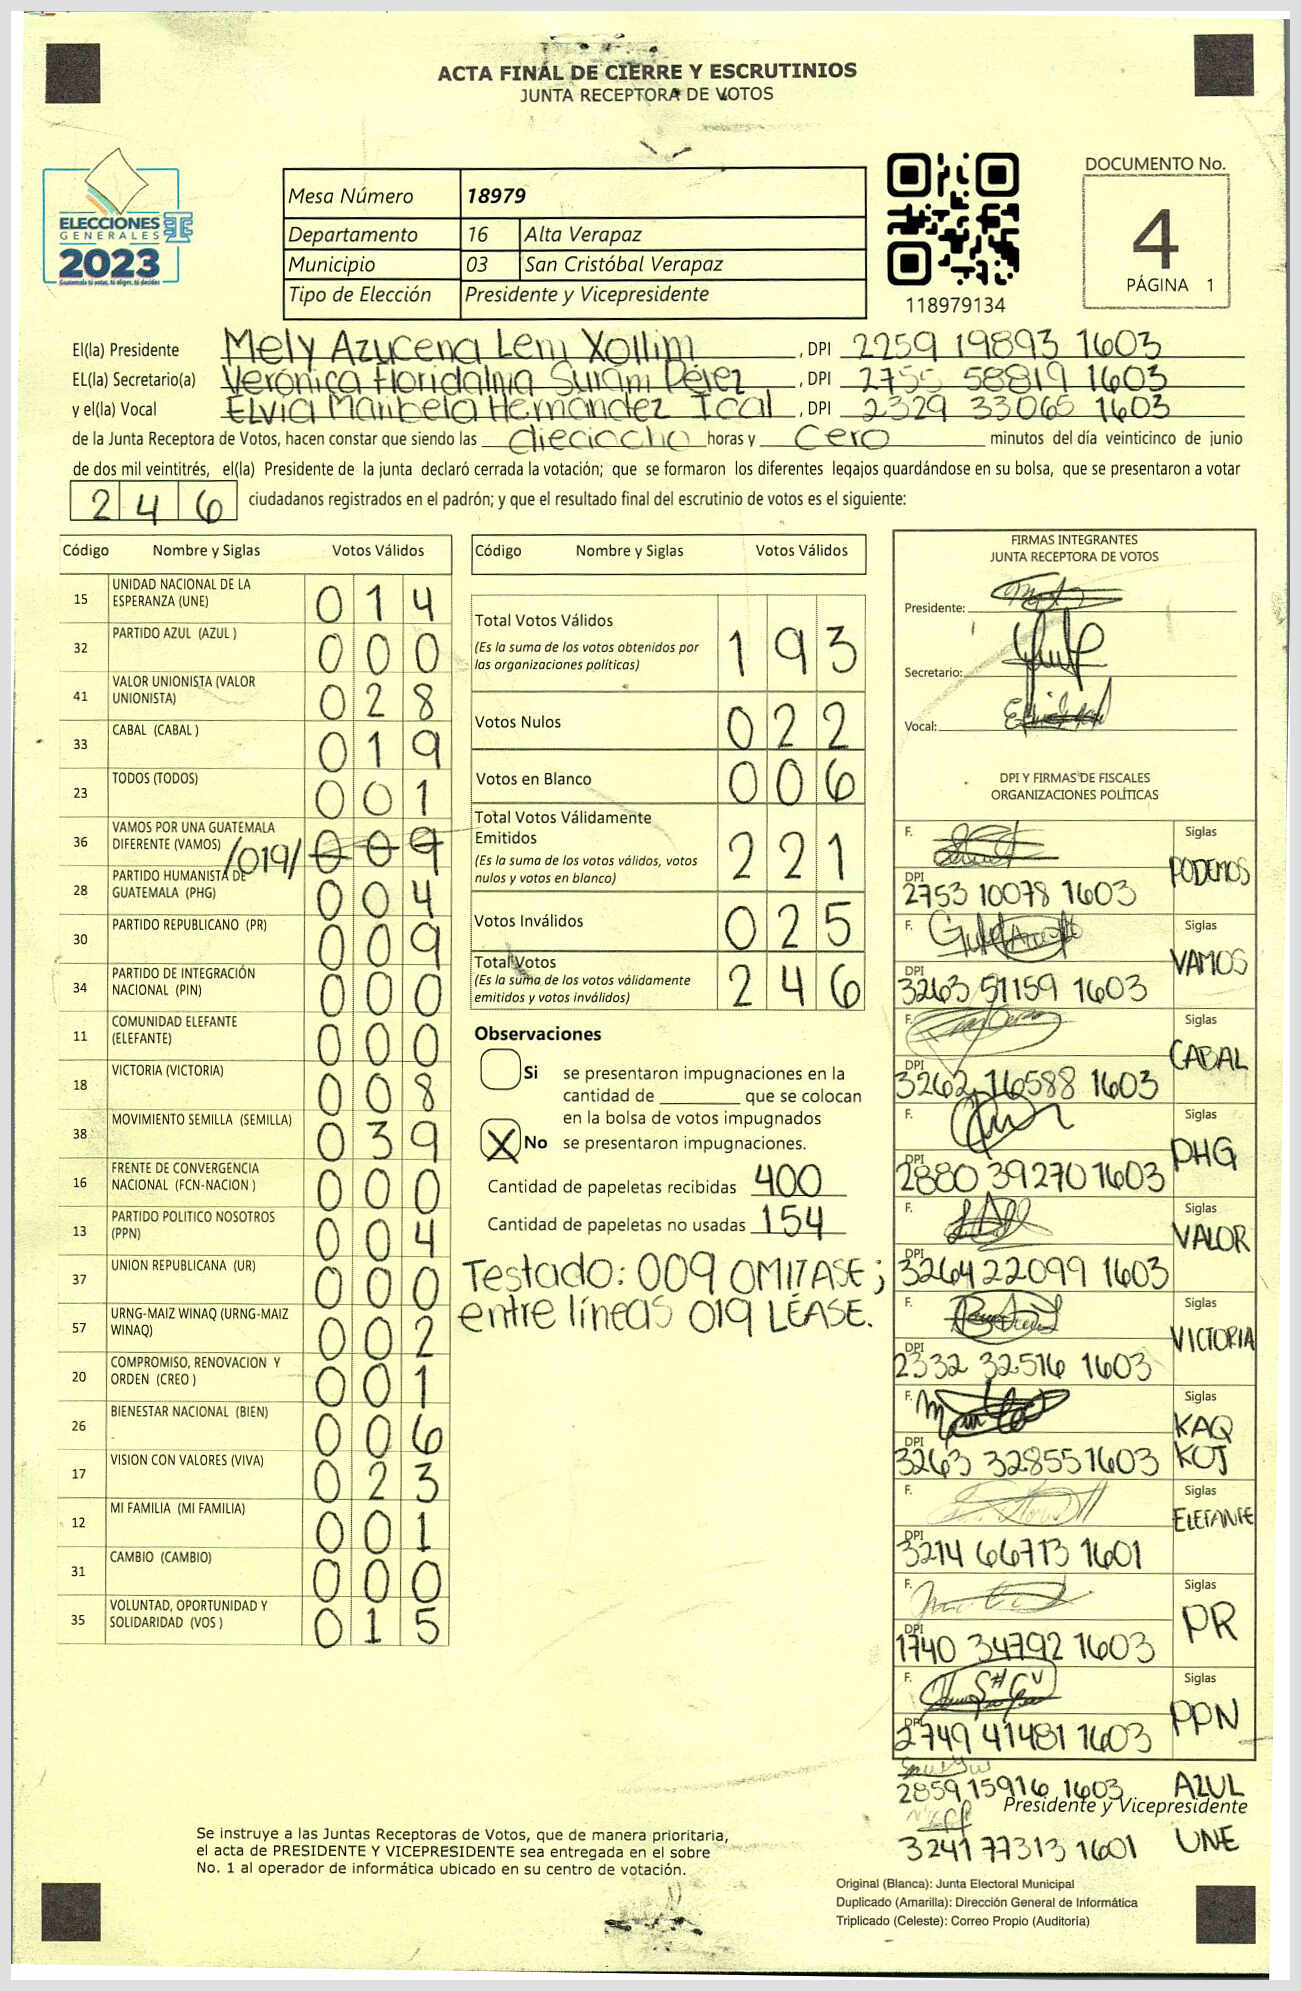 ACTA FINAL DE CIERRE Y ESCRUTINIOS
JUNTA RECEPTORA DE VOTOS
ELECCIONES
GENERALES
2023
Guatemala tú votas, tú eliges, tú decides
Mesa Número 18979
Departamento 16 Alta Verapaz
Municipio 03 San Cristóbal Verapaz
Tipo de Elección Presidente y Vicepresidente
118979134
DOCUMENTO No.
4
PÁGINA 1
El(la) Presidente Mely Azucena Lem Xollim, DPI 2259 19893 1603
EL(la) Secretario(a) Verónica Floridalma Suram Pérez, DPI 2755 58819 1603
y el(la) Vocal Elvia Maribela Hernández Ical, DPI 2329 33065 1603
de la Junta Receptora de Votos, hacen constar que siendo las dieciocho horas y cero minutos del día veinticinco de junio
de dos mil veintitrés, el(la) Presidente de la junta declaró cerrada la votación; que se formaron los diferentes legajos guardándose en su bolsa, que se presentaron a votar
246 ciudadanos registrados en el padrón; y que el resultado final del escrutinio de votos es el siguiente:
Código Nombre y Siglas Votos Válidos
15 UNIDAD NACIONAL DE LA ESPERANZA (UNE) 014
32 PARTIDO AZUL (AZUL ) 000
41 VALOR UNIONISTA (VALOR UNIONISTA) 028
33 CABAL (CABAL ) 019
23 TODOS (TODOS) 001
36 VAMOS POR UNA GUATEMALA DIFERENTE (VAMOS) /019/ 009
28 PARTIDO HUMANISTA DE GUATEMALA (PHG) 004
30 PARTIDO REPUBLICANO (PR) 009
34 PARTIDO DE INTEGRACIÓN NACIONAL (PIN) 000
11 COMUNIDAD ELEFANTE (ELEFANTE) 000
18 VICTORIA (VICTORIA) 008
38 MOVIMIENTO SEMILLA (SEMILLA) 039
16 FRENTE DE CONVERGENCIA NACIONAL (FCN-NACION ) 000
13 PARTIDO POLITICO NOSOTROS (PPN) 004
37 UNION REPUBLICANA (UR) 000
57 URNG-MAIZ WINAQ (URNG-MAIZ WINAQ) 002
20 COMPROMISO, RENOVACION Y ORDEN (CREO ) 001
26 BIENESTAR NACIONAL (BIEN) 006
17 VISION CON VALORES (VIVA) 023
12 MI FAMILIA (MI FAMILIA) 001
31 CAMBIO (CAMBIO) 000
35 VOLUNTAD, OPORTUNIDAD Y SOLIDARIDAD (VOS ) 015
Código Nombre y Siglas Votos Válidos
Total Votos Válidos 193
(Es la suma de los votos obtenidos por
las organizaciones políticas)
Votos Nulos 022
Votos en Blanco 006
Total Votos Válidamente
Emitidos 221
(Es la suma de los votos válidos, votos
nulos y votos en blanco)
Votos Inválidos 025
Total Votos 246
(Es la suma de los votos válidamente
emitidos y votos inválidos)
Observaciones
Si se presentaron impugnaciones en la
cantidad de ________ que se colocan
en la bolsa de votos impugnados
X No se presentaron impugnaciones.
Cantidad de papeletas recibidas 400
Cantidad de papeletas no usadas 154
Testado: 009 OMITASE;
entre líneas 019 LÉASE.
FIRMAS INTEGRANTES
JUNTA RECEPTORA DE VOTOS
Presidente:
Secretario:
Vocal:
DPI Y FIRMAS DE FISCALES
ORGANIZACIONES POLÍTICAS
F. Siglas
DPI 2753 10078 1603 PODEMOS
F. Siglas
DPI 3263 51159 1603 VAMOS
F. Siglas
DPI 3262 16588 1603 CABAL
F. Siglas
DPI 2880 39270 1603 PHG
F. Siglas
DPI 3264 22099 1603 VALOR
F. Siglas
DPI 2332 32516 1603 VICTORIA
F. Siglas
DPI 3263 32855 1603 KAQ KOJ
F. Siglas
DPI 3214 66713 1601 ELEFANTE
F. Siglas
DPI 1740 34792 1603 PR
F. Siglas
DPI 2749 41481 1603 PPN
2859 15916 1603 AZUL
Presidente y Vicepresidente
3241 77313 1601 UNE
Se instruye a las Juntas Receptoras de Votos, que de manera prioritaria,
el acta de PRESIDENTE Y VICEPRESIDENTE sea entregada en el sobre
No. 1 al operador de informática ubicado en su centro de votación.
Original (Blanca): Junta Electoral Municipal
Duplicado (Amarilla): Dirección General de Informática
Triplicado (Celeste): Correo Propio (Auditoría)